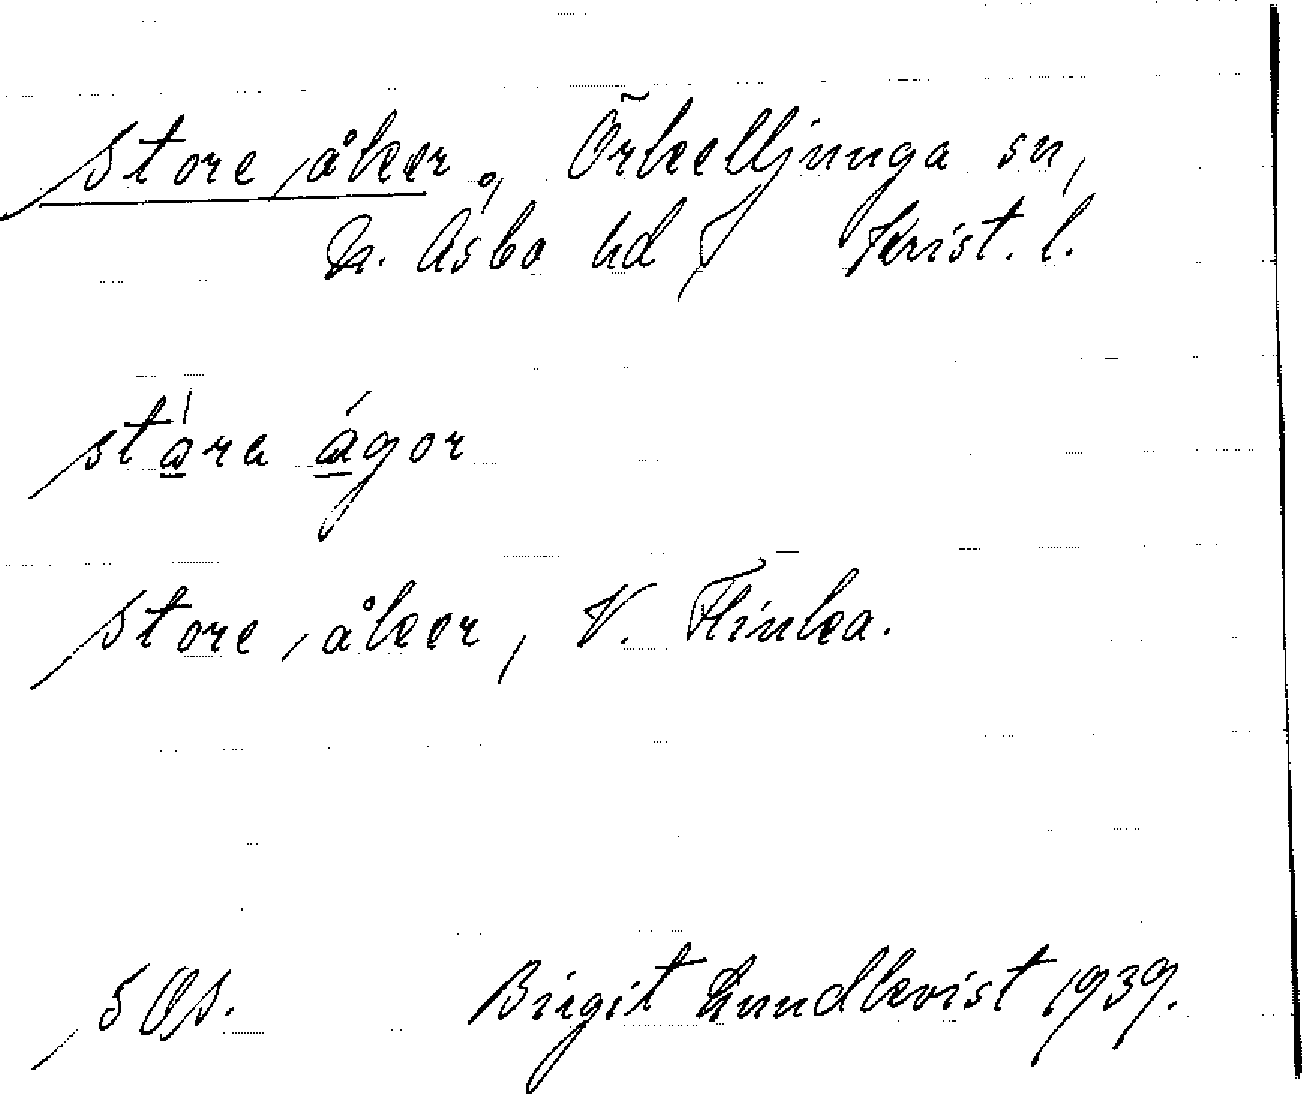 Store åker, Örkelljunga sn,
N. Åsbo hd, Krist. l.
stara ágor
store åker, V. Flinka.
Birgit Lundkvist 1939.